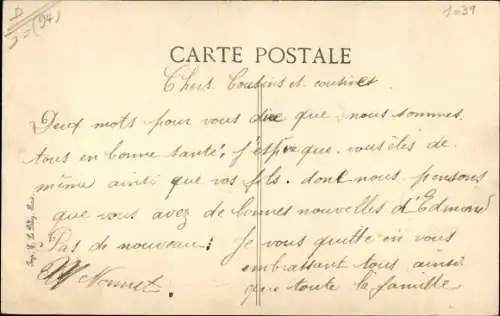 D
3=(94)
1=39
CARTE POSTALE
Chers Cousins et cousines
Deux mots pour vous dire que nous sommes
tous en bonne santé, j'espère que vous êtes de
même ainsi que vos fils. dont nous pensons
que vous avez de bonnes nouvelles d'Edmond
Pas de nouveau; Je vous quitte en vous
embrassant tous ainsi
que toute la famille
Nonnet.
Imp.